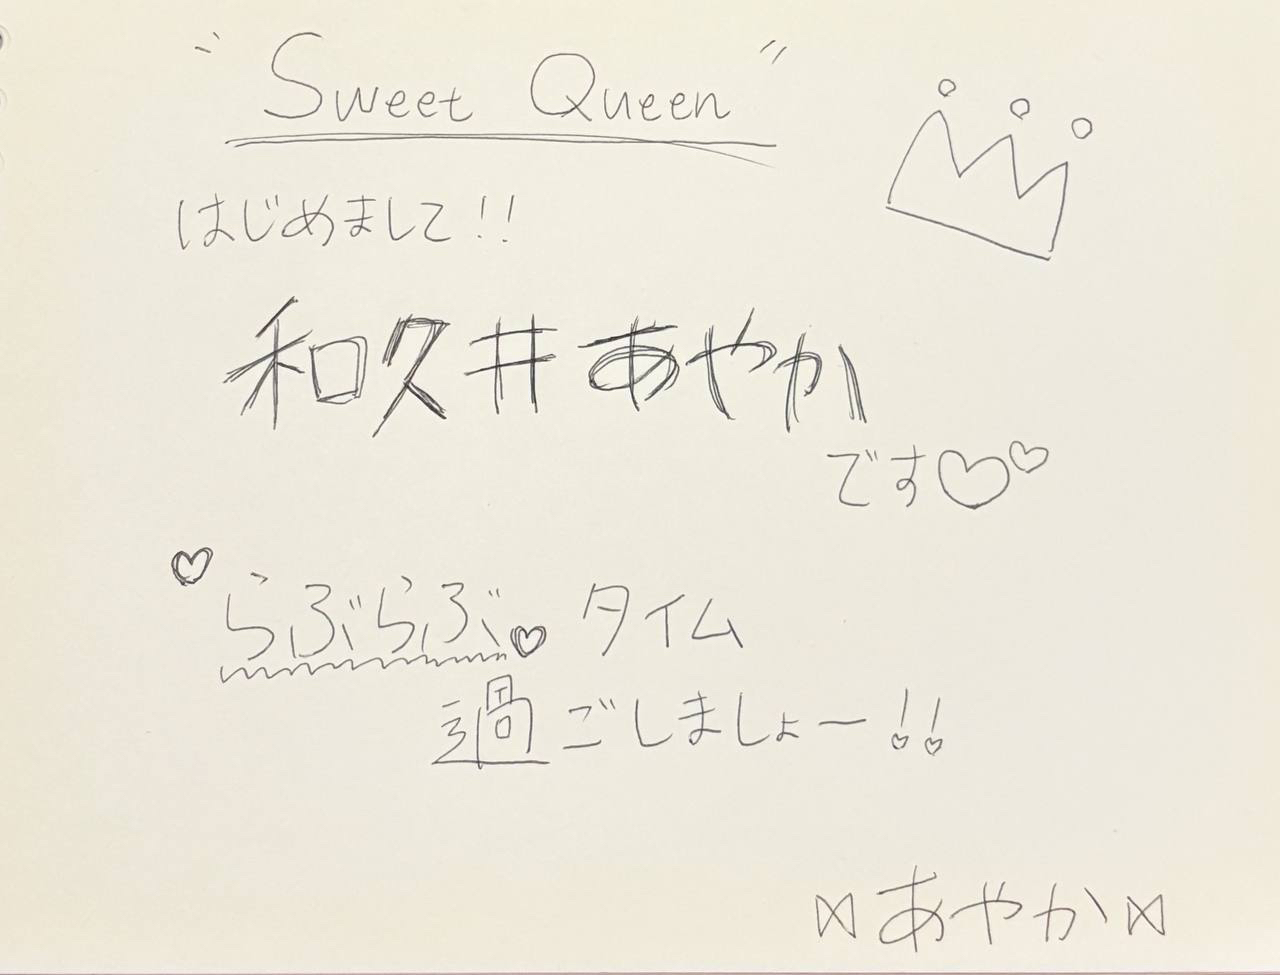 "Sweet Queen"
はじめまして!!
和久井あやか
です♡♡
♡らぶらぶ♡タイム
過ごしましょー!!
⋈あやか⋈